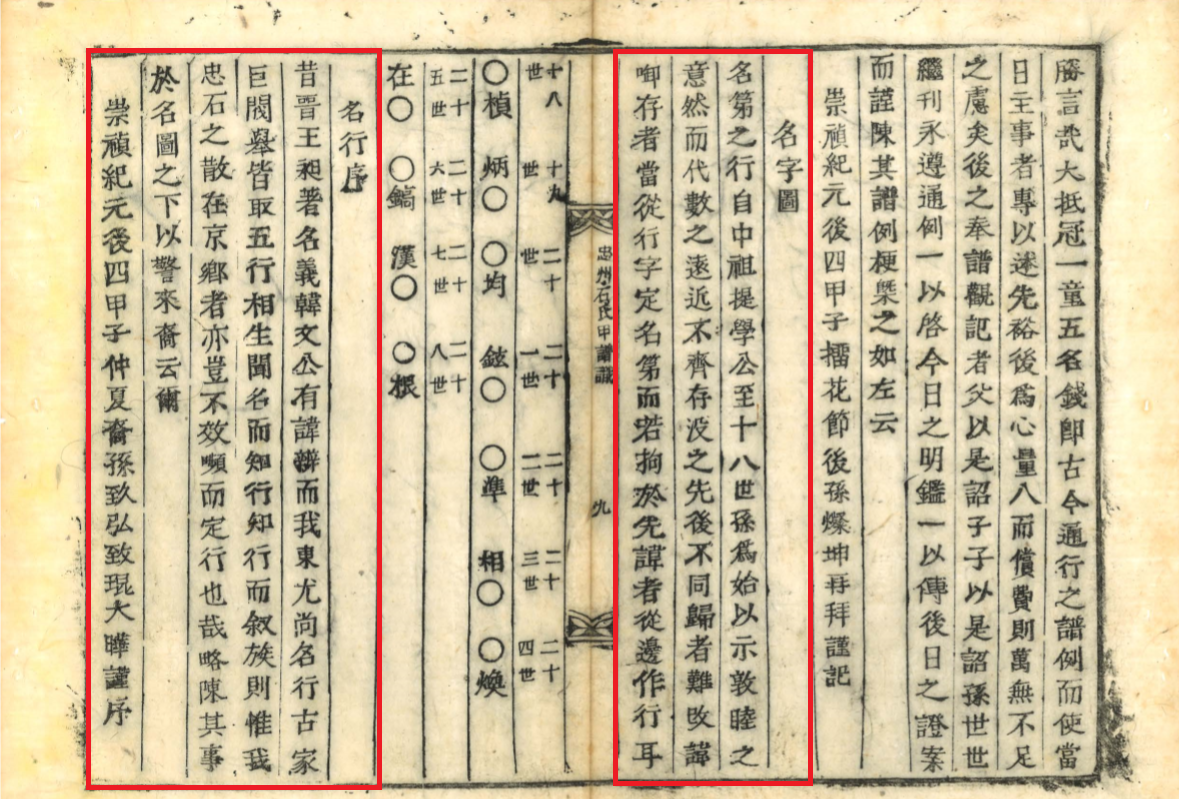 勝言哉大抵冠一童五名錢卽古今通行之譜例而使當
日主事者專以述先裕後爲心量入而償費則萬無不足
之慮矣後之奉譜觀記者父以是詔子子以是詔孫世世
繼刊永遵通例一以啓今日之明鑑一以傳後日之證案
而謹陳其譜例梗槩之如左云
崇禎紀元後四甲子擂花節後孫燦坤再拜謹記
名字圖
名第之行自中祖提學公至十八世孫爲始以示敦睦之
意然而代數之遠近不齊存没之先後不同歸者難改諱
啣存者當從行字定名第而若拘於先諱者從邊作行耳
忠州石氏甲譜識 九
十八世 十九世 二十世 二十一世 二十二世 二十三世 二十四世
〇楨 炳〇 〇均 鉉〇 〇準 相〇 〇煥
二十五世 二十六世 二十七世 二十八世
在〇 〇鎬 漢〇 〇根
名行序
昔晋王昶著名義韓文公有諱辨而我東尤尚名行古家
巨閥擧皆取五行相生聞名而知行知行而叙族則惟我
忠石之散在京鄕者亦豈不效嚬而定行也哉略陳其事
於名圖之下以警來裔云爾
崇禎紀元後四甲子仲夏裔孫致弘致琨大曄謹序